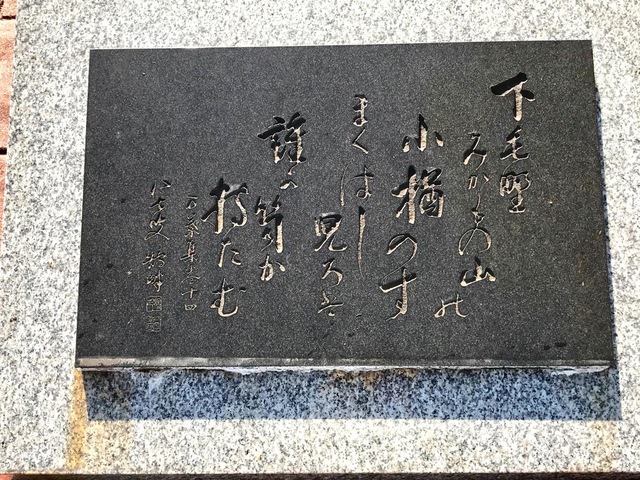 下毛野
みかもの山の
小楢のす
まくはし
児ろは
誰か笥か
持たむ
万葉集巻十四